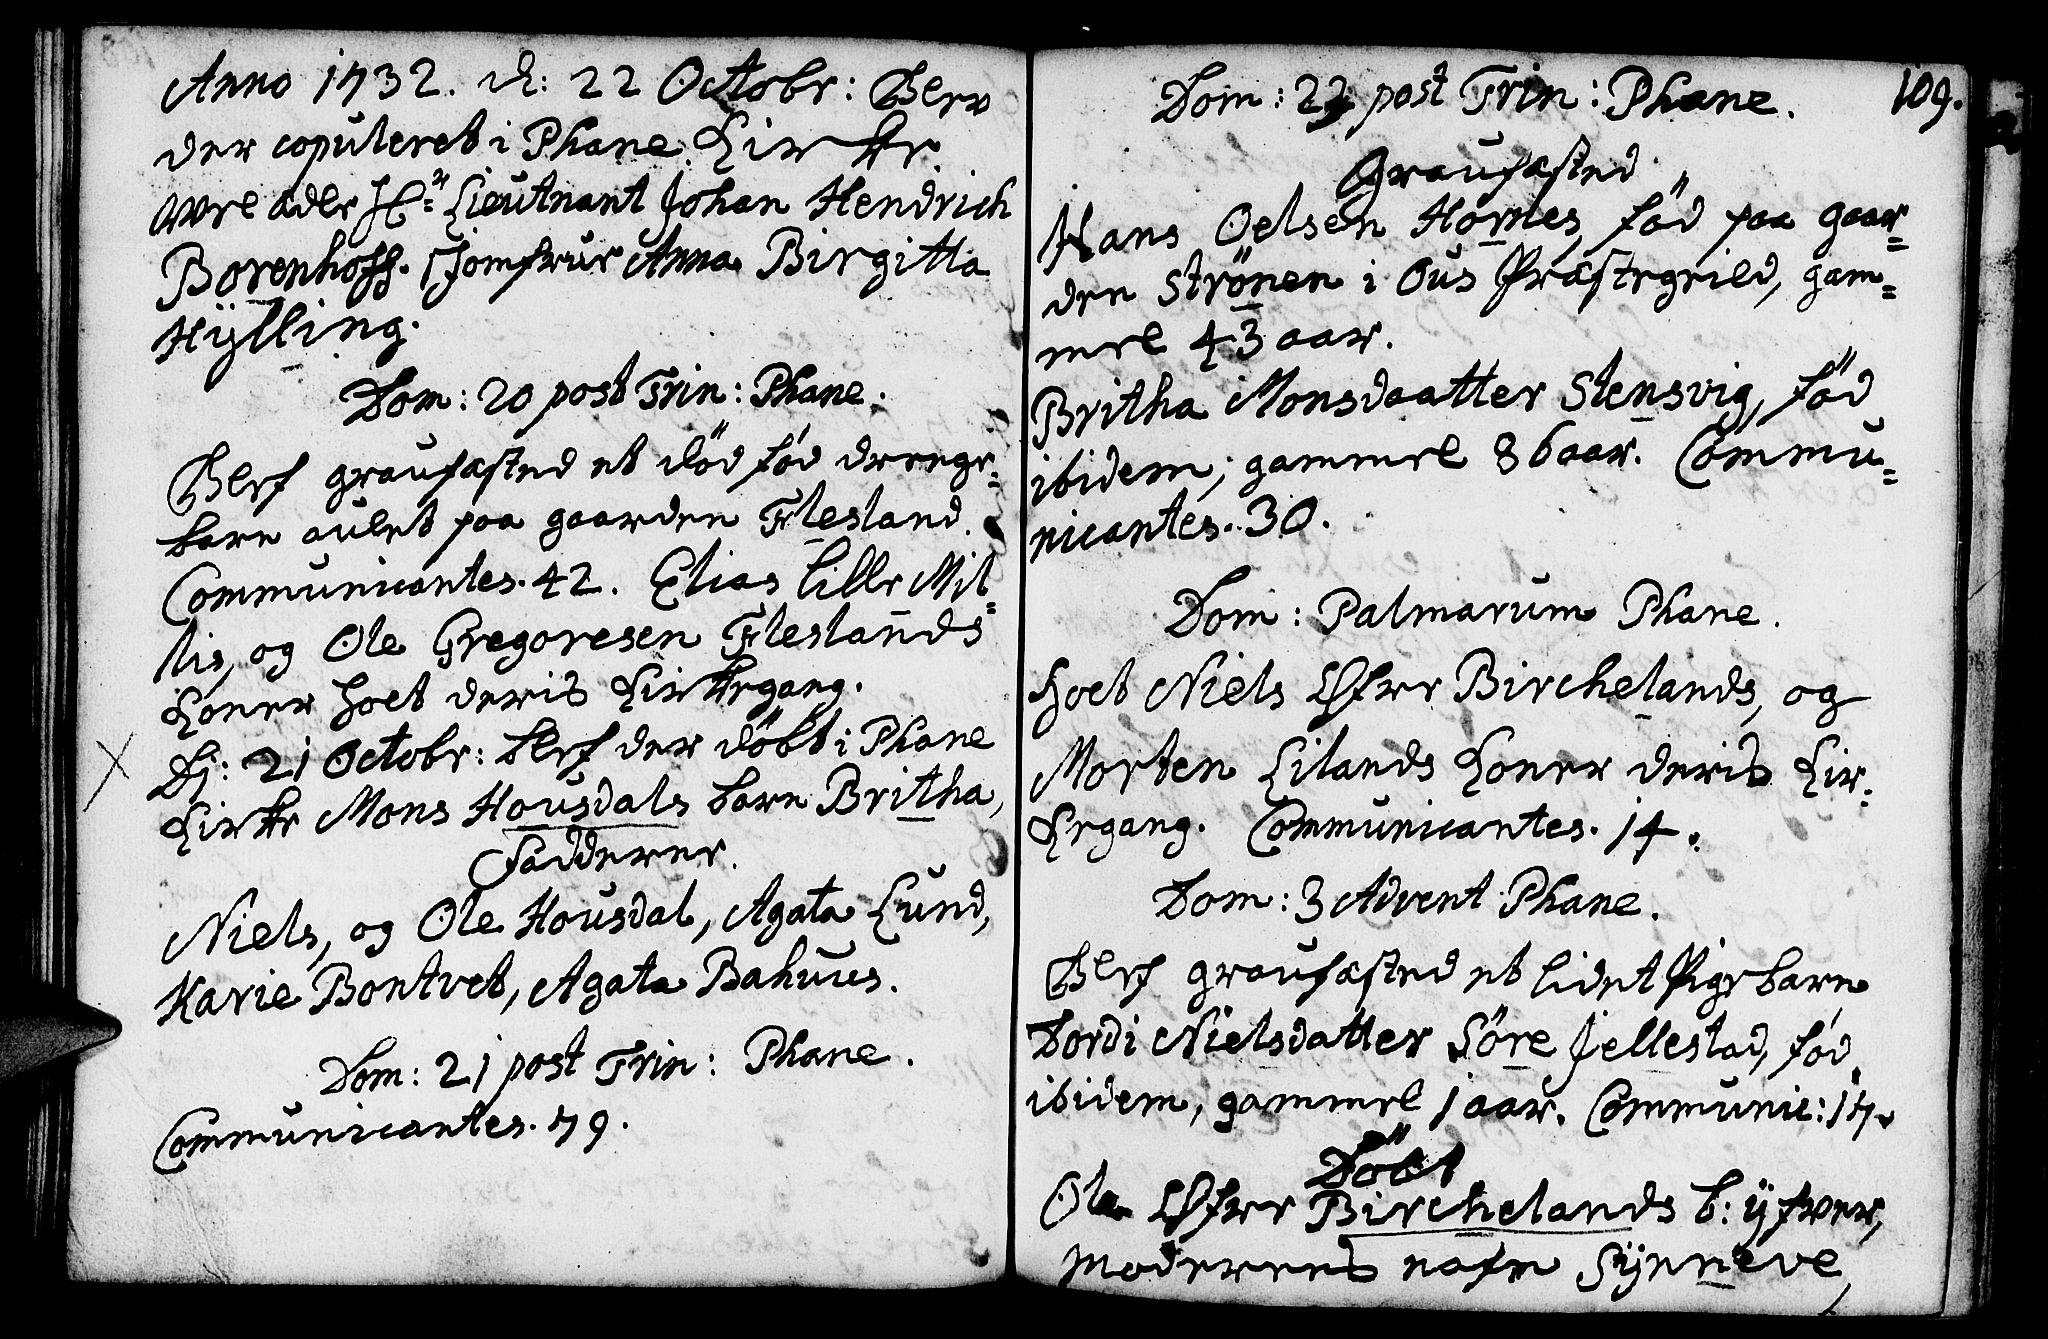 Anno 1732. d: 22 Octobr: Blev
der copuleret i Phane Kirke
Vel ædle Hr: Lieutnant Johan Hendrich
Borenhoff. Jomfrue Anna Birgitta
Hÿlling.
Dom: 20 post Trin: Phane.
Blef graufæsted et död fød drenge-
barn aulet paa gaarden Flesland.
Communicantes. 42. Elias Lille Mil-
lis, og Ole Gregoresen Fleslands
Koner holt deris Kirkegang.
Dj: 21 Octobr: blef der döbt i Phane
Kirke Mons Housdals barn Britha,
Fadderer.
Niels, og Ole Housdal, Agata Lund,
Karie Bontvet, Agata Bahuus.
Dom: 21 post Trin: Phane.
Communicantes. 79.
109.
Dom: 23 post Trin: Phane.
Graufæsted
Hans Oelsen Hornes, föd paa gaar-
den Strönen i Ous Præstegield, gam-
mel 43 aar.
Britha Monsdaatter Stensvig, föd
ibidem, gammel 86 aar. Commu-
nicantes. 30.
Dom: Palmarum Phane.
Holt Niels Øfre Birchelands, og
Morten Lilands Koner deris Kir-
kegang. Communicantes. 14.
Dom: 3 Advent Phane.
Blef graufæsted et lidet Pige barn
Dordi Nielsdatter Söre Jellestad, fød
ibidem, gammel 1 aar. Communic: 17.
Döbt
Ole Øfre Birchelands b: ÿfver,
moderens nafn Sÿnneve,